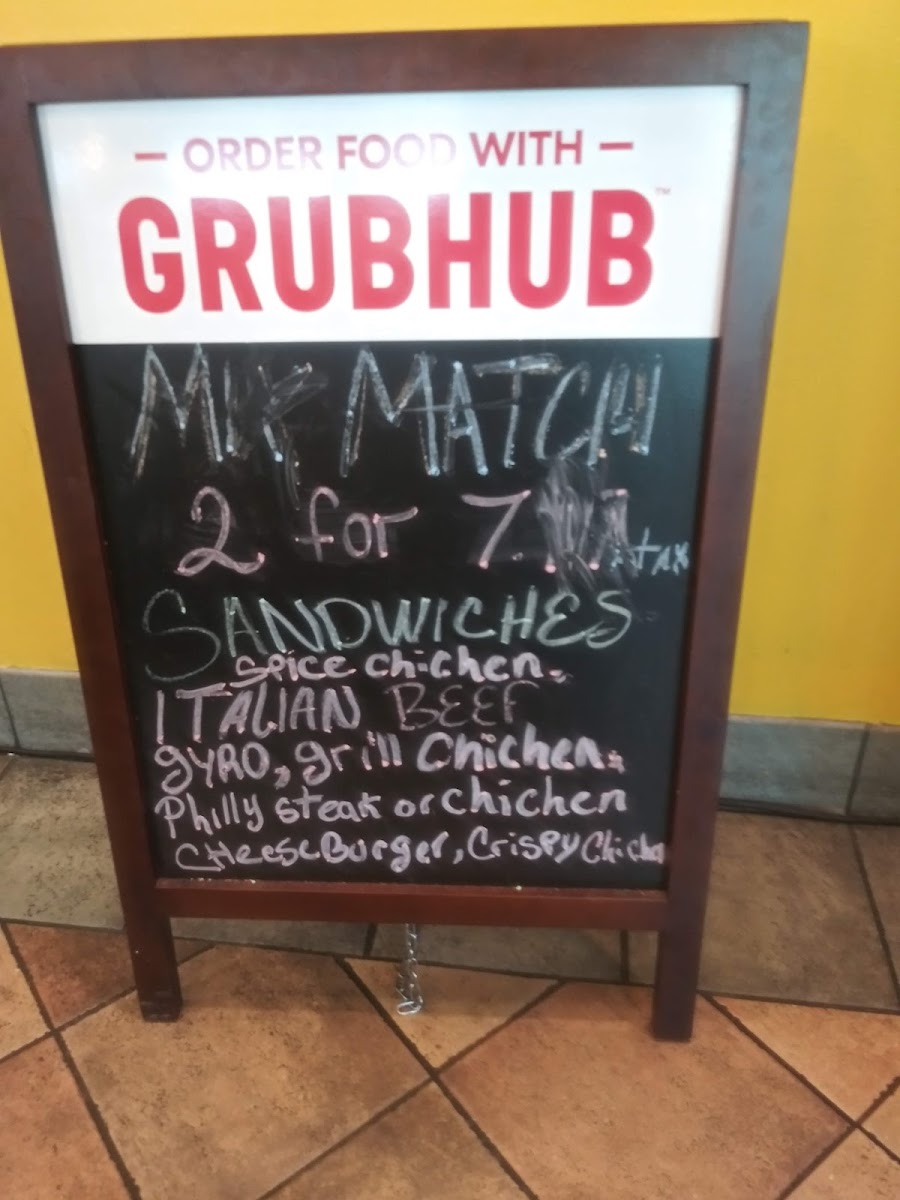 — ORDER FOOD WITH —
GRUBHUB™
MIX MATCH
2 for 7. + tax
SANDWICHES
SPICE chichen.
ITALIAN BEEF
gyRO, grill Chichen.
Philly steak or chichen
CHeese Burger, Crispy Chichen